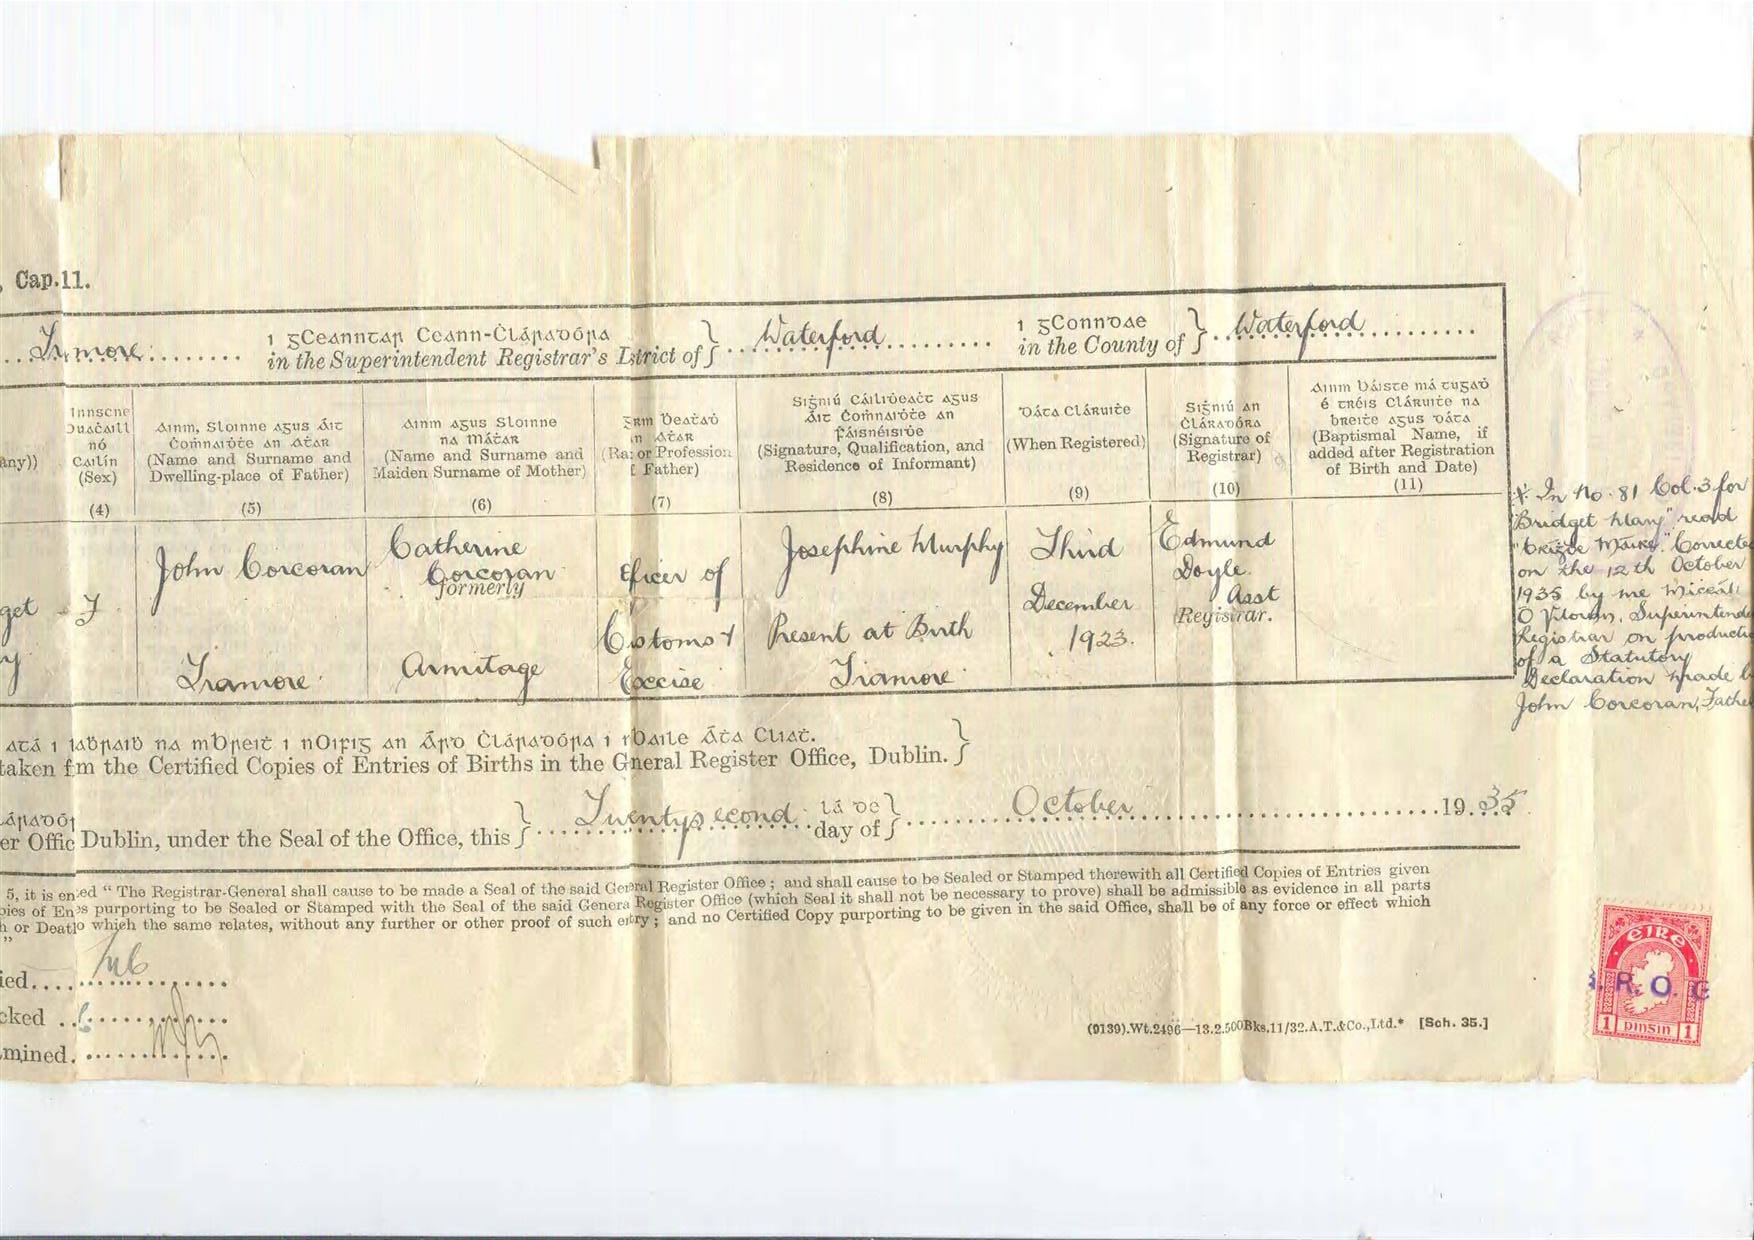 , Cap.11.
Tramore
ı gCeanntar Ceann-Ċláraḋóra
in the Superintendent Registrar's District of
Waterford
ı gConndae
in the County of
Waterford
any))
Innscne
nó
Cailín
(Sex)
(4)
Ainm, Sloinne agus Áit
Ċoṁnaiḋṫe an Aṫar
(Name and Surname and
Dwelling-place of Father)
(5)
Ainm agus Sloinne
na Máṫar
(Name and Surname and
Maiden Surname of Mother)
(6)
an Aṫar
or Profession
Father)
(7)
Siġniú Cáiliḋeaċt agus
Áit Ċoṁnaiḋṫe an
Ḟáisnéisiḋe
(Signature, Qualification, and
Residence of Informant)
(8)
Dáta Cláruiṫe
(When Registered)
(9)
Siġniú an
Ċláraḋóra
(Signature of
Registrar)
(10)
Ainm báiste má tugaḋ
é tréis Cláruiṫe na
breiṫe agus dáta
(Baptismal Name, if
added after Registration
of Birth and Date)
(11)
get
y
F
John Corcoran
Tramore
Catherine
Corcoran
formerly
Armitage
Officer of
Customs +
Excise
Josephine Murphy
Present at Birth
Tramore
Third
December
1923.
Edmund
Doyle.
Asst
Registrar.
X. In No. 81 Col. 3 for
"Bridget Mary" read
"Brigde Maire." Corrected
on the 12th October
1935 by me Miceál
Superintende
Registrar on producti
of a Statutory
Declaration made b
John Corcoran, Fathe
atá i n-Oifig an Árd Ċláraḋóra i mBaile Áṫa Cliaṫ.
taken from the Certified Copies of Entries of Births in the General Register Office, Dublin.
er Office Dublin, under the Seal of the Office, this
Twentysecond
lá de
day of
October
19 35
5, it is enacted "The Registrar-General shall cause to be made a Seal of the said General Register Office; and shall cause to be Sealed or Stamped therewith all Certified Copies of Entries given
pies of Entries purporting to be Sealed or Stamped with the Seal of the said General Register Office (which Seal it shall not be necessary to prove) shall be admissible as evidence in all parts
h or Death to which the same relates, without any further or other proof of such entry; and no Certified Copy purporting to be given in the said Office, shall be of any force or effect which
"
ied
cked
mined.
(9139).Wt.2496—13.2.500Bks.11/32.A.T.&Co.,Ltd.* [Sch. 35.]
éıre
.R.O.
1 pinsin 1